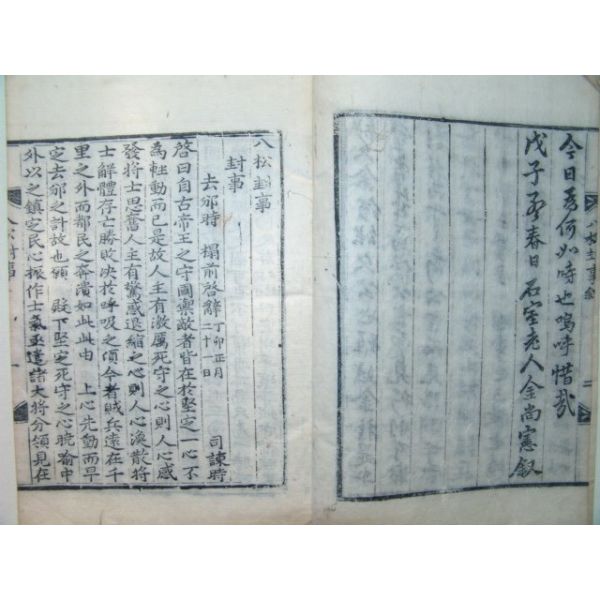 今日爲何如時也嗚呼惜哉
戊子孟春日石室老人金尚憲叙
八松封事
封事
去邠時 榻前啓辭 丁卯正月二十一日 司諫時
啓曰自古帝王之守國禦敵者皆在於堅定一心不
為輕動而已是故人主有激厲死守之心則人心感
發將士思奮人主有驚惑退縮之心則人心渙散將
士解體存亡勝敗決於呼吸之頃今者賊兵遠在千
里之外而都民之奔潰如此此由 上心先動而早
定去邠之計故也願 殿下堅定死守之心曉喻中
外以之鎮定民心振作士氣亟遣諸大將分領見在
八松封事
一
八松封事叙
二